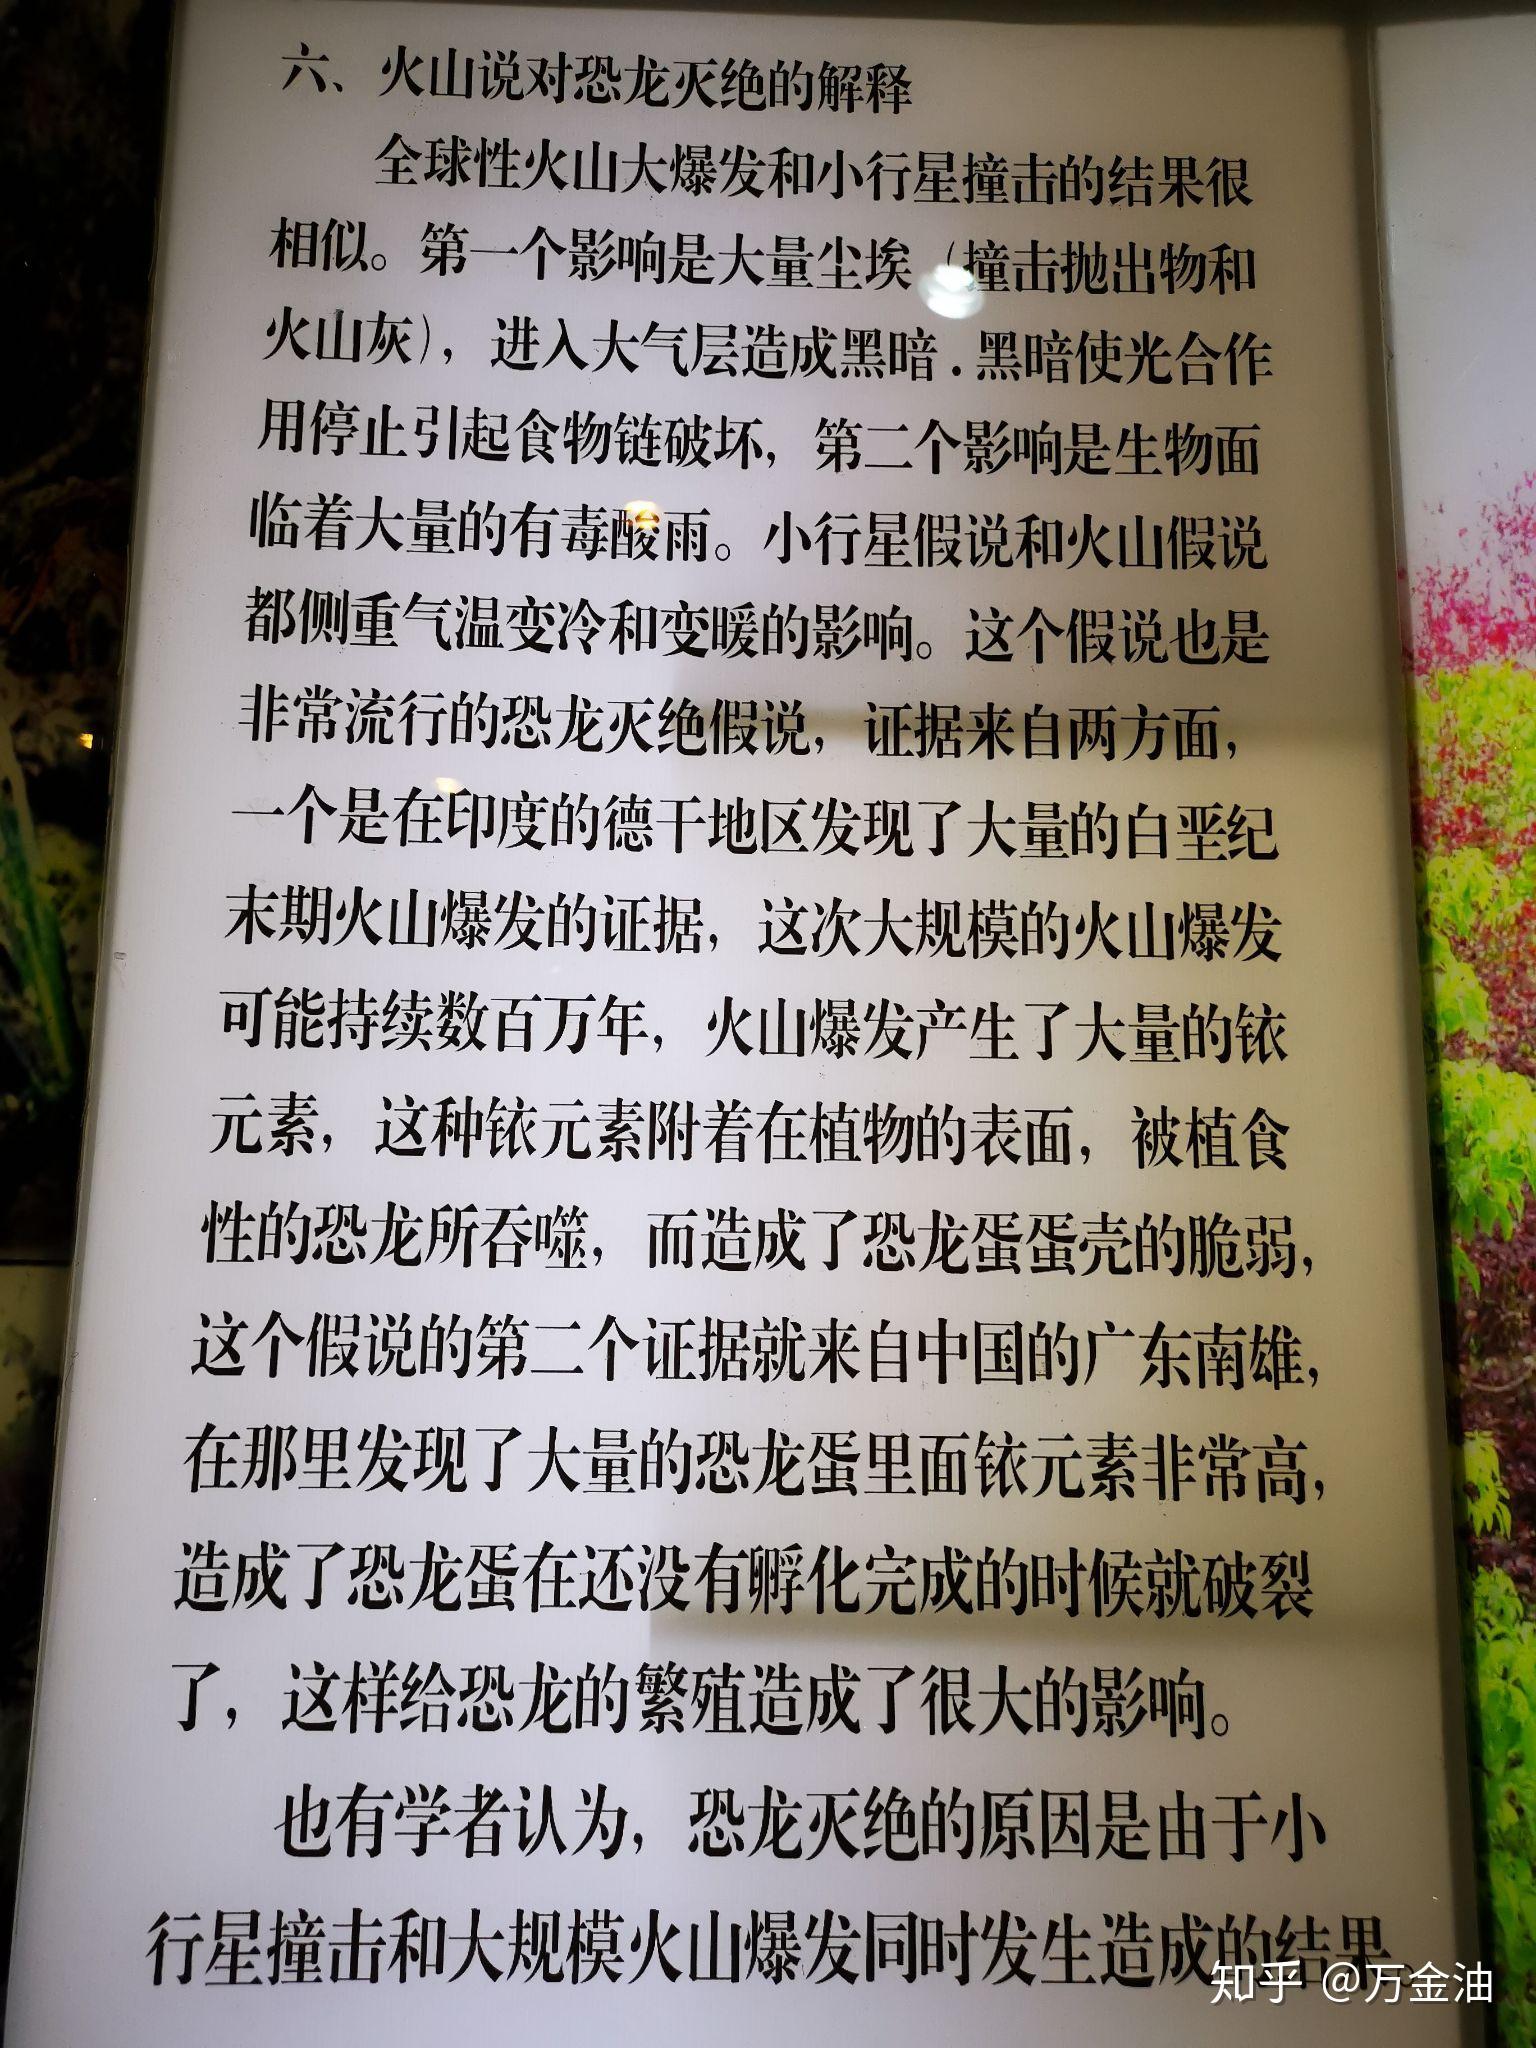 六、火山说对恐龙灭绝的解释
全球性火山大爆发和小行星撞击的结果很
相似。第一个影响是大量尘埃（撞击抛出物和
火山灰），进入大气层造成黑暗．黑暗使光合作
用停止引起食物链破坏，第二个影响是生物面
临着大量的有毒酸雨。小行星假说和火山假说
都侧重气温变冷和变暖的影响。这个假说也是
非常流行的恐龙灭绝假说，证据来自两方面，
一个是在印度的德干地区发现了大量的白垩纪
末期火山爆发的证据，这次大规模的火山爆发
可能持续数百万年，火山爆发产生了大量的铱
元素，这种铱元素附着在植物的表面，被植食
性的恐龙所吞噬，而造成了恐龙蛋蛋壳的脆弱，
这个假说的第二个证据就来自中国的广东南雄，
在那里发现了大量的恐龙蛋里面铱元素非常高，
造成了恐龙蛋在还没有孵化完成的时候就破裂
了，这样给恐龙的繁殖造成了很大的影响。
也有学者认为，恐龙灭绝的原因是由于小
行星撞击和大规模火山爆发同时发生造成的结果。
知乎 @万金油